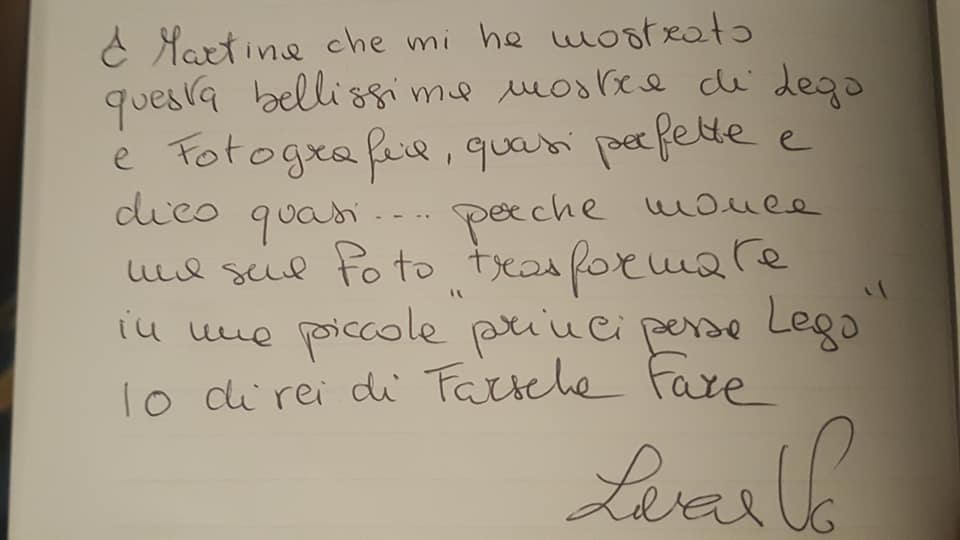 A Martina che mi ha mostrato
questa bellissima mostra di Lego
e Fotografia, quasi perfetta e
dico quasi.... perche manca
una sua Foto trasformata
in una piccola "principessa Lego"
Io direi di Farsela Fare